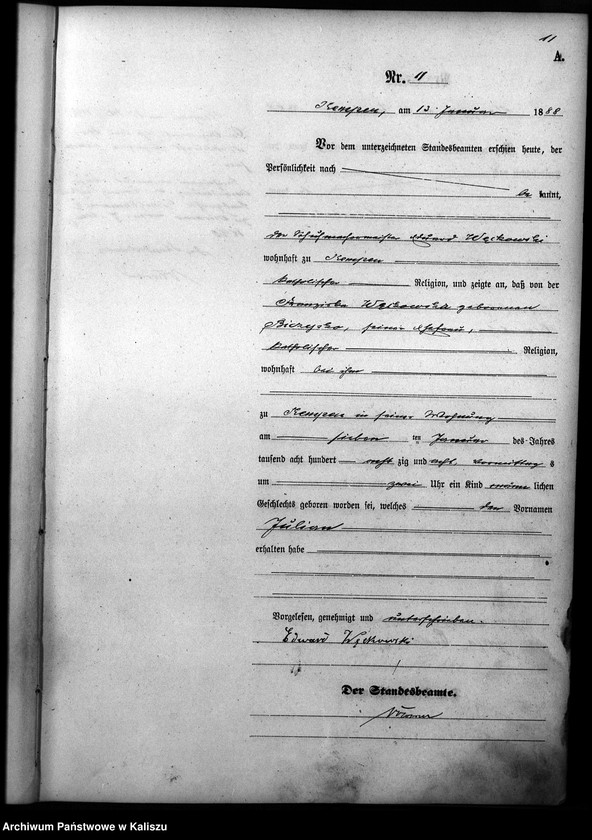 11
A.
Nr. 11
Kempen, am 13 Januar 1888
Vor dem unterzeichneten Standesbeamten erschien heute, der
Persönlichkeit nach
be kannt,
der Schuhmachermeister Eduard Węckowski
wohnhaft zu Kempen
katholischer Religion, und zeigte an, daß von der
Franziska Węckowska geborenen
seiner Ehefrau,
katholischer Religion,
wohnhaft bei ihm
zu Kempen in seiner Wohnung
am sieben ten Januar des Jahres
tausend acht hundert acht zig und acht, Vormittag s
um zwei Uhr ein Kind männ lichen
Geschlechts geboren worden sei, welches den Vornamen
Julian
erhalten habe
Vorgelesen, genehmigt und unterschrieben.
Edward Węckowski
Der Standesbeamte.
Archiwum Państwowe w Kaliszu